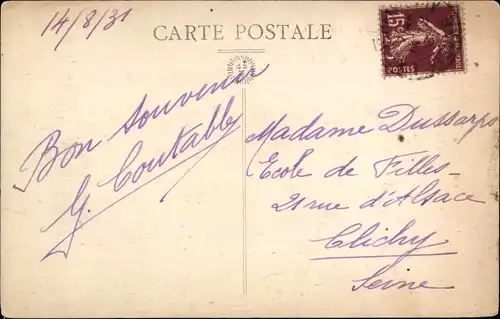 14/8/31
CARTE POSTALE
15c
POSTES
Bon souvenir
G. Coutable
Madame Dussarps
Ecole de Filles
21 rue d'Alsace
Clichy
Seine